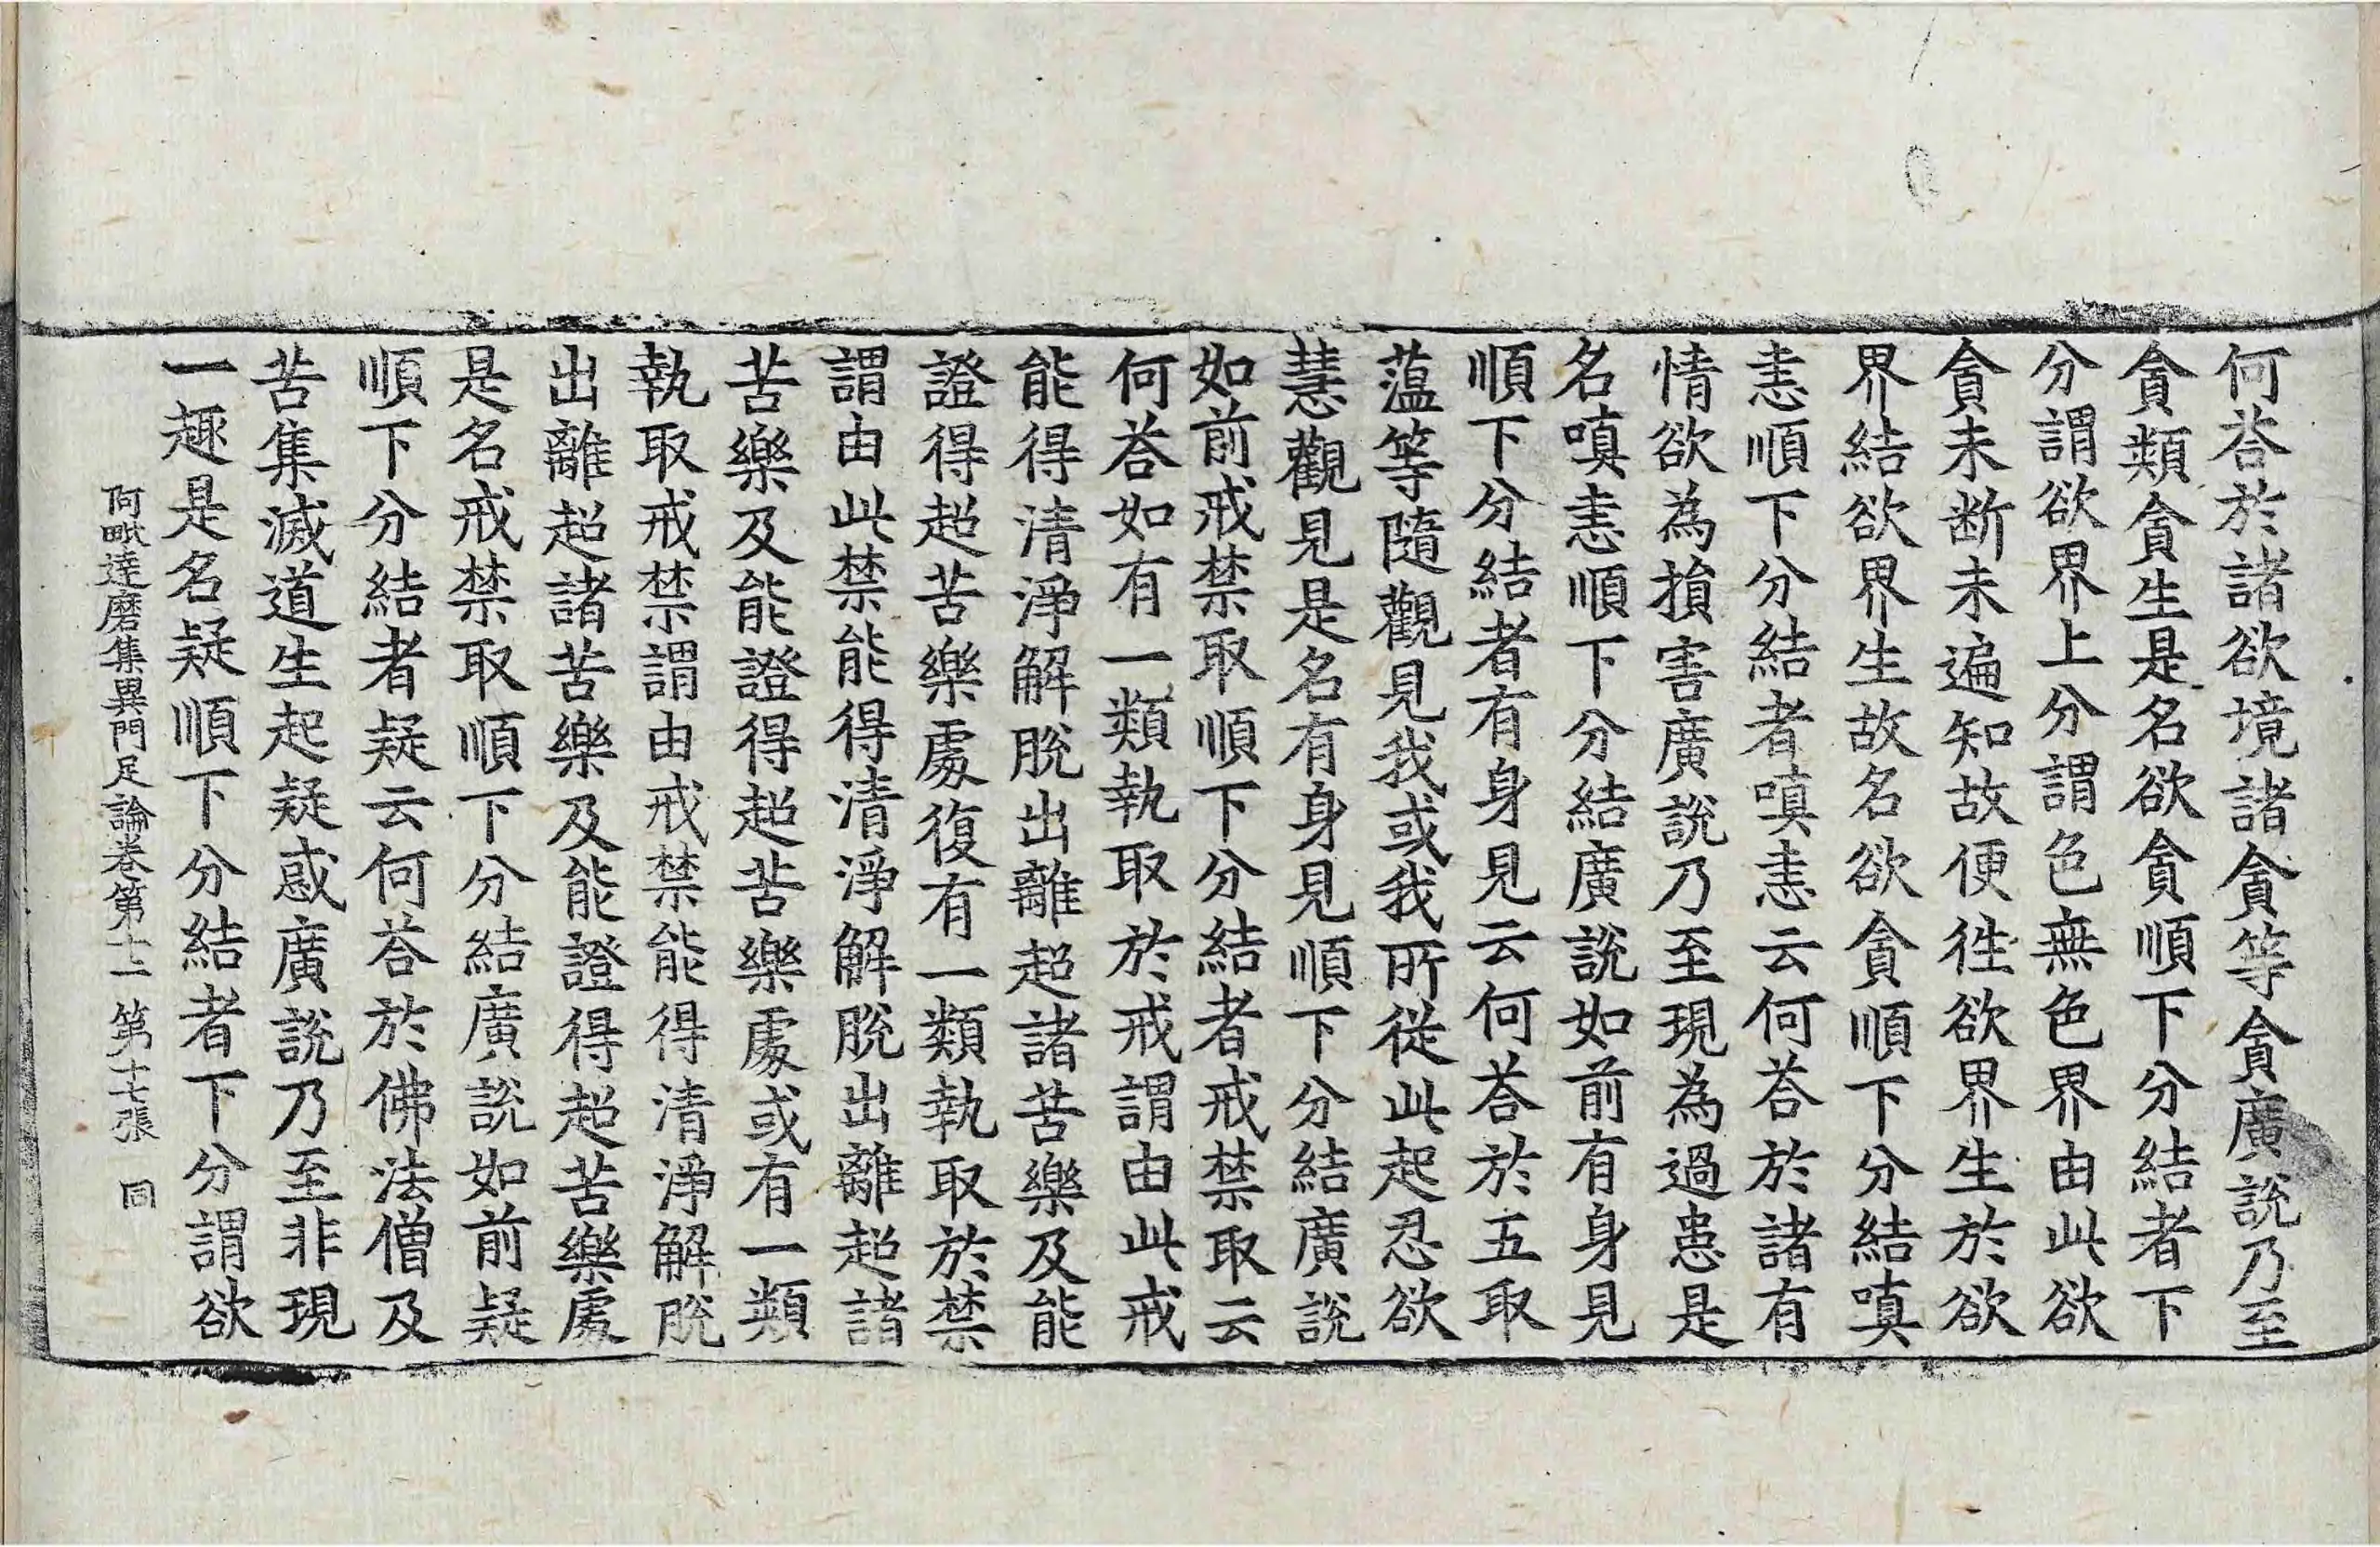 何荅於諸欲境諸貪等貪廣說乃至
貪類貪生是名欲貪順下分結者下
分謂欲界上分謂色無色界由此欲
貪未断未遍知故便徃欲界生於欲
界結欲界生故名欲貪順下分結嗔
恚順下分結者嗔恚云何荅於諸有
情欲為損害廣說乃至現為過患是
名嗔恚順下分結廣說如前有身見
順下分結者有身見云何荅於五取
薀等隨觀見我或我所從此起忍欲
慧觀見是名有身見順下分結廣說
如前戒禁取順下分結者戒禁取云
何荅如有一類執取於戒謂由此戒
能得清淨解脫出離超諸苦樂及能
證得超苦樂處復有一類執取於禁
謂由此禁能得清淨解脫出離超諸
苦樂及能證得超苦樂處或有一類
執取戒禁謂由戒禁能得清淨解脫
出離超諸苦樂及能證得超苦樂處
是名戒禁取順下分結廣說如前疑
順下分結者疑云何荅於佛法僧及
苦集滅道生起疑惑廣說乃至非現
一趣是名疑順下分結者下分謂欲
阿毗達磨集異門足論卷第十二 第十七張 同